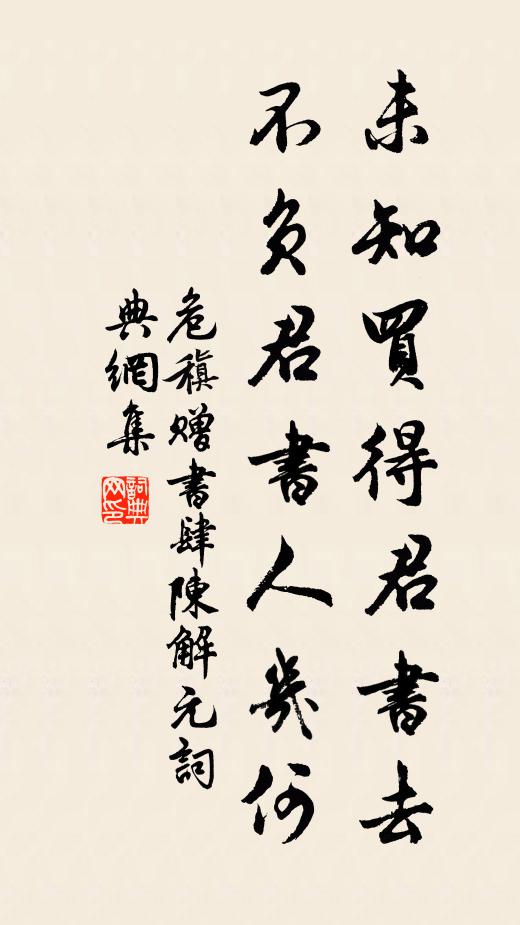 未知買得君書去
不負君書人幾何
危稹贈書肆陳解元詞
典網集
詞典
网印